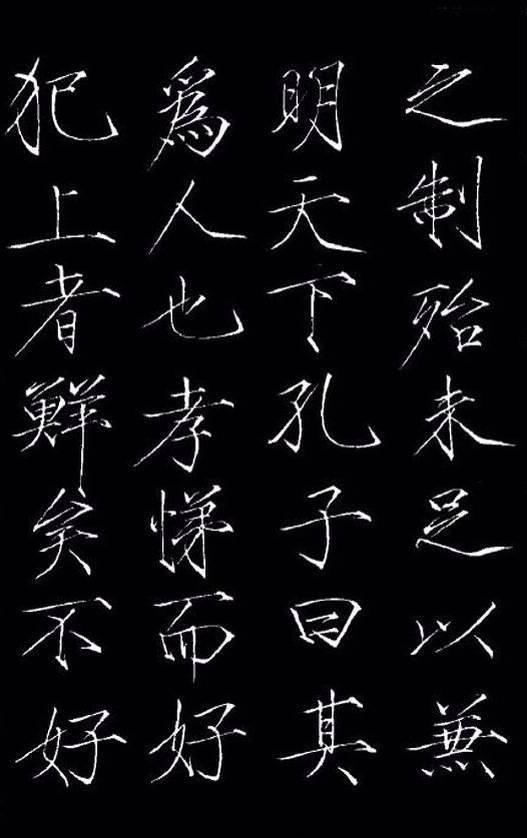 之制殆未足以無
明天下孔子曰其
為人也孝悌而好
犯上者鮮矣不好